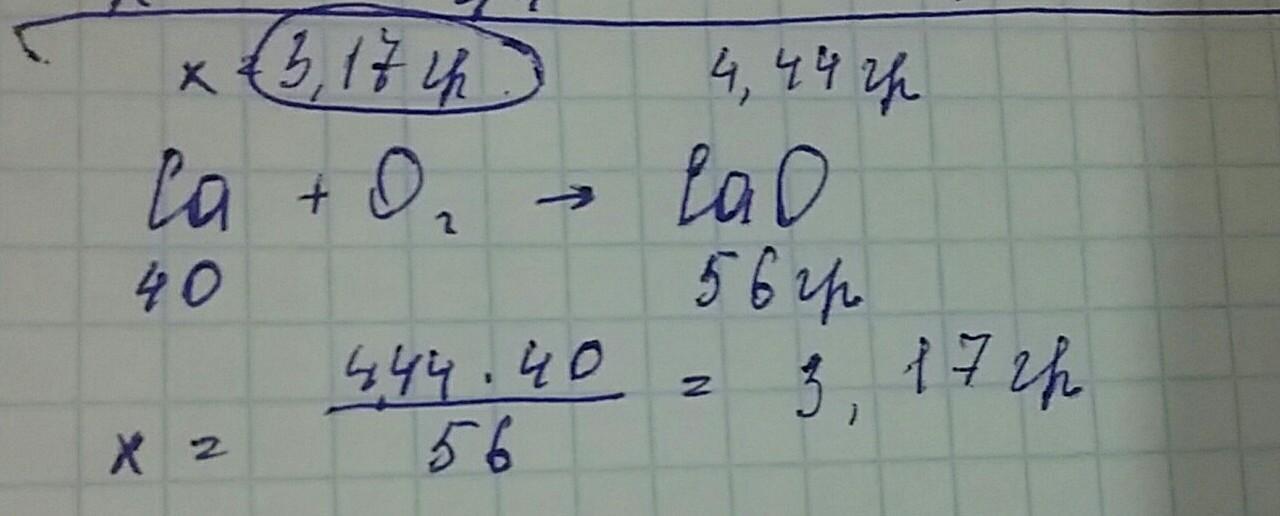 x = 3,17 гр 4,44 гр
Ca + O₂ → CaO
40 56 гр
x = 4,44 · 40 / 56 = 3,17 гр